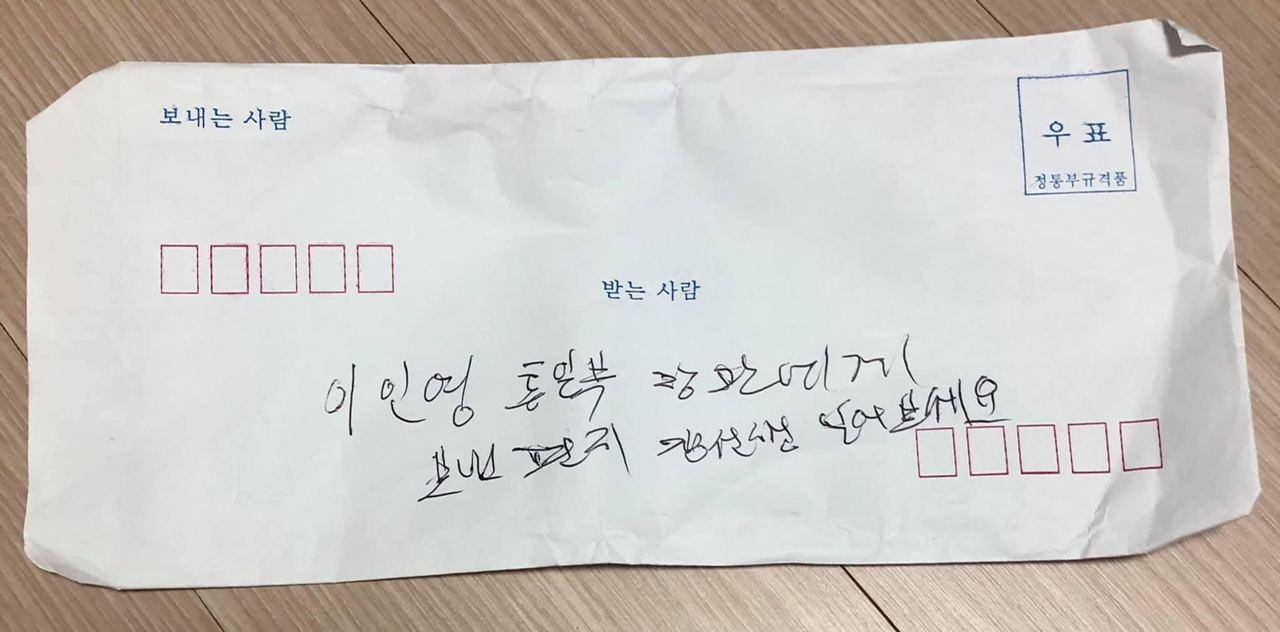 보내는 사람
우표
정통부규격품
받는 사람
이인영 통일부 장관에게
보낸 편지 김선생 읽어보세요